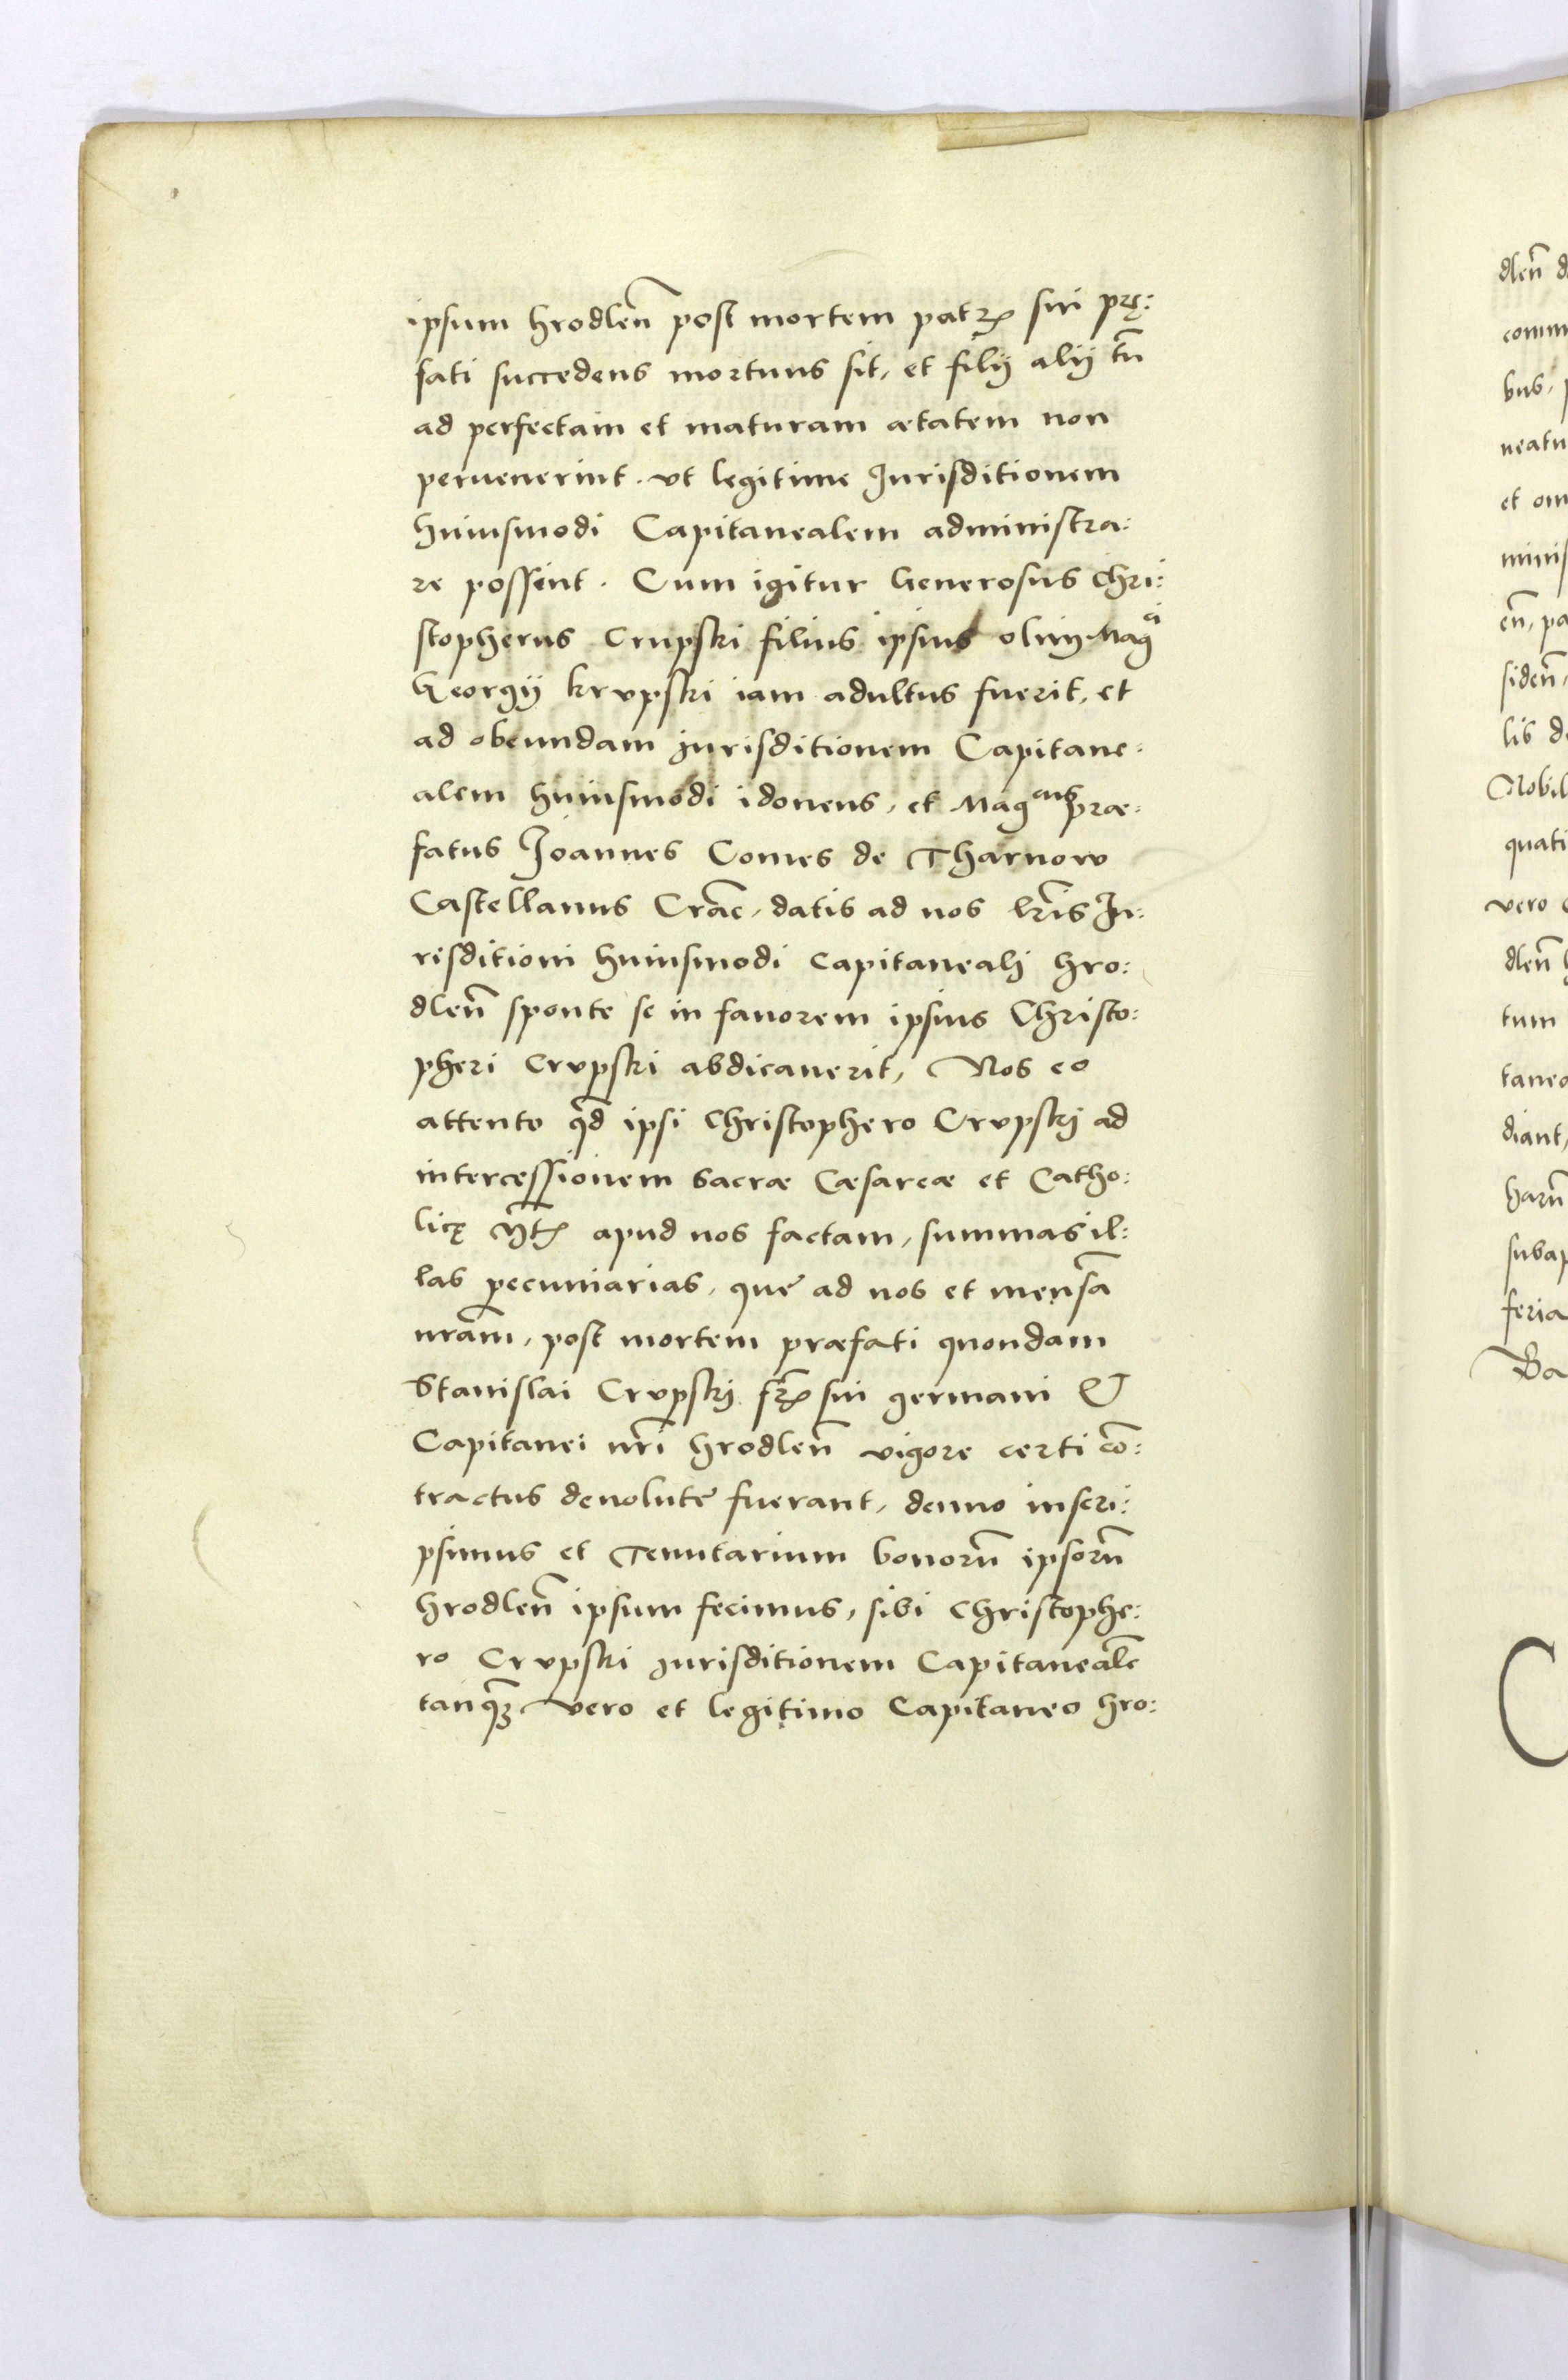 ipsum hrodleñ post mortem patrꝭ sui prę:
fati succedens mortuus sit, et filij alij tñ
ad perfectam et maturam ætatem non
peruenerint. vt legitime Jurisditionem
huiusmodi Capitanealem administra:
re possent. Cum igitur Generosus Chri:
stopherus Crupski filius ipsius olim Mag^ci
Georgij krvpski iam adultus fuerit, et
ad obeundam jurisditionem Capitane:
alem huiusmodi idoneus, et Mag^cus præ:
fatus Joannes Comes de Tharnow
Castellanus Crac̃, datis ad nos lr̃is Ju:
risditioni huiusmodi Capitaneali hro:
dleñ sponte se in fauorem ipsius Christo:
pheri Crvpski abdicauerit, Nos eo
attento qd̃ ipsi Christophero Crvpskj ad
intercessionem Sacræ Cæsareæ et Catho:
licę Mtꝭ apud nos factam, summas il:
las pecuniarias, que ad nos et mensã
nr̃am, post mortem præfati quondam
Stanislai Crvpskj fr̃ꝭ sui germani &
Capitanei nr̃i hrodleñ vigore certi cõ:
tractus deuolute fuerant, denuo inscri:
psimus et Tenutarium bonorũ ipsorũ
hrodleñ ipsum fecimus, sibi Christophe:
ro Crvpski jurisditionem Capitanealẽ
tanqꝫ vero et legitimo Capitaneo hro:
dleñ
comm
bus,
neatu
et om
minis
eñ, pa
sideñ,
lis de
Nobil
quati
vero
dleñ
tum
taneo
diant,
harũ
subap
feria
Ba
C